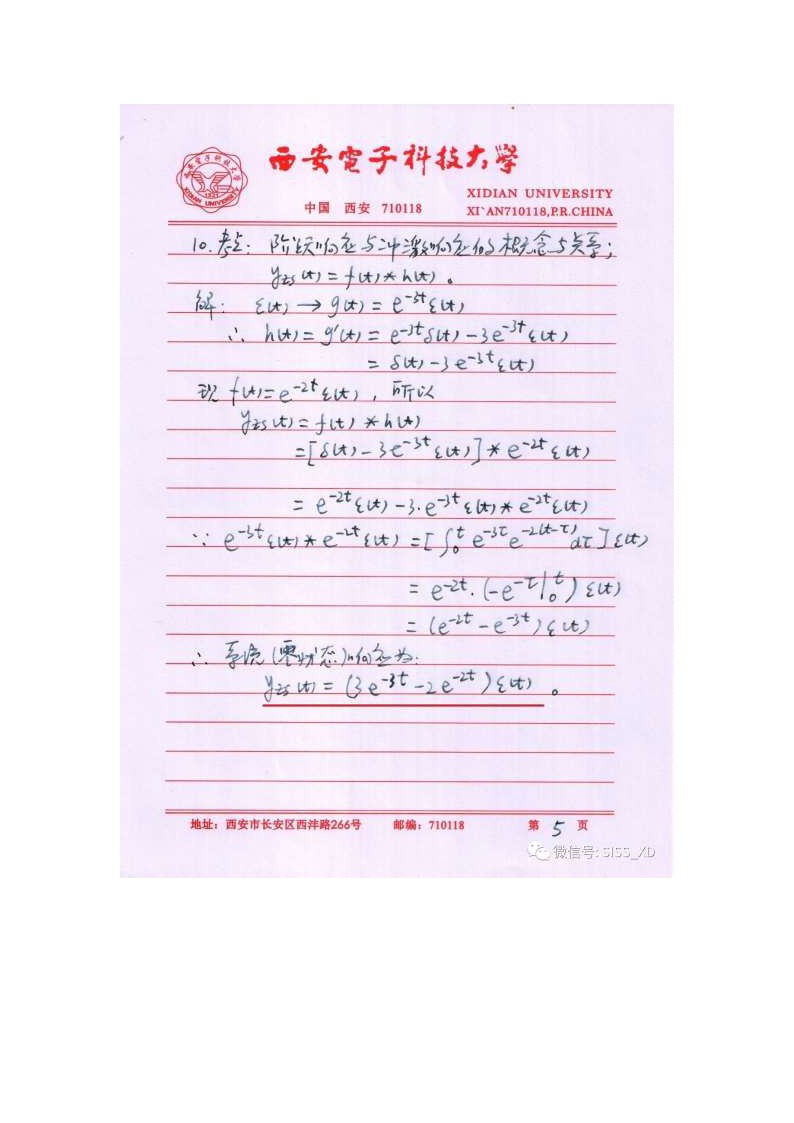 西安電子科技大學
XIDIAN UNIVERSITY
中国 西安 710118
XI`AN710118,P.R.CHINA
10. 考点: 阶跃响应与冲激响应的概念与关系;
yzs(t) = f(t)*h(t)。
解: ε(t) → g(t) = e^-3t ε(t)
∴ h(t) = g'(t) = e^-3t δ(t) - 3e^-3t ε(t)
= δ(t) - 3e^-3t ε(t)
现 f(t) = e^-2t ε(t), 所以
yzs(t) = f(t) * h(t)
= [δ(t) - 3e^-3t ε(t)] * e^-2t ε(t)
= e^-2t ε(t) - 3·e^-3t ε(t) * e^-2t ε(t)
∵ e^-3t ε(t) * e^-2t ε(t) = [∫₀^t e^-3τ e^-2(t-τ) dτ] ε(t)
= e^-2t · (-e^-τ|₀^t) ε(t)
= (e^-2t - e^-3t) ε(t)
∴ 系统(零状态)响应为:
yzs(t) = (3e^-3t - 2e^-2t) ε(t)。
地址: 西安市长安区西沣路266号 邮编: 710118 第 5 页
微信号: SISS_XD